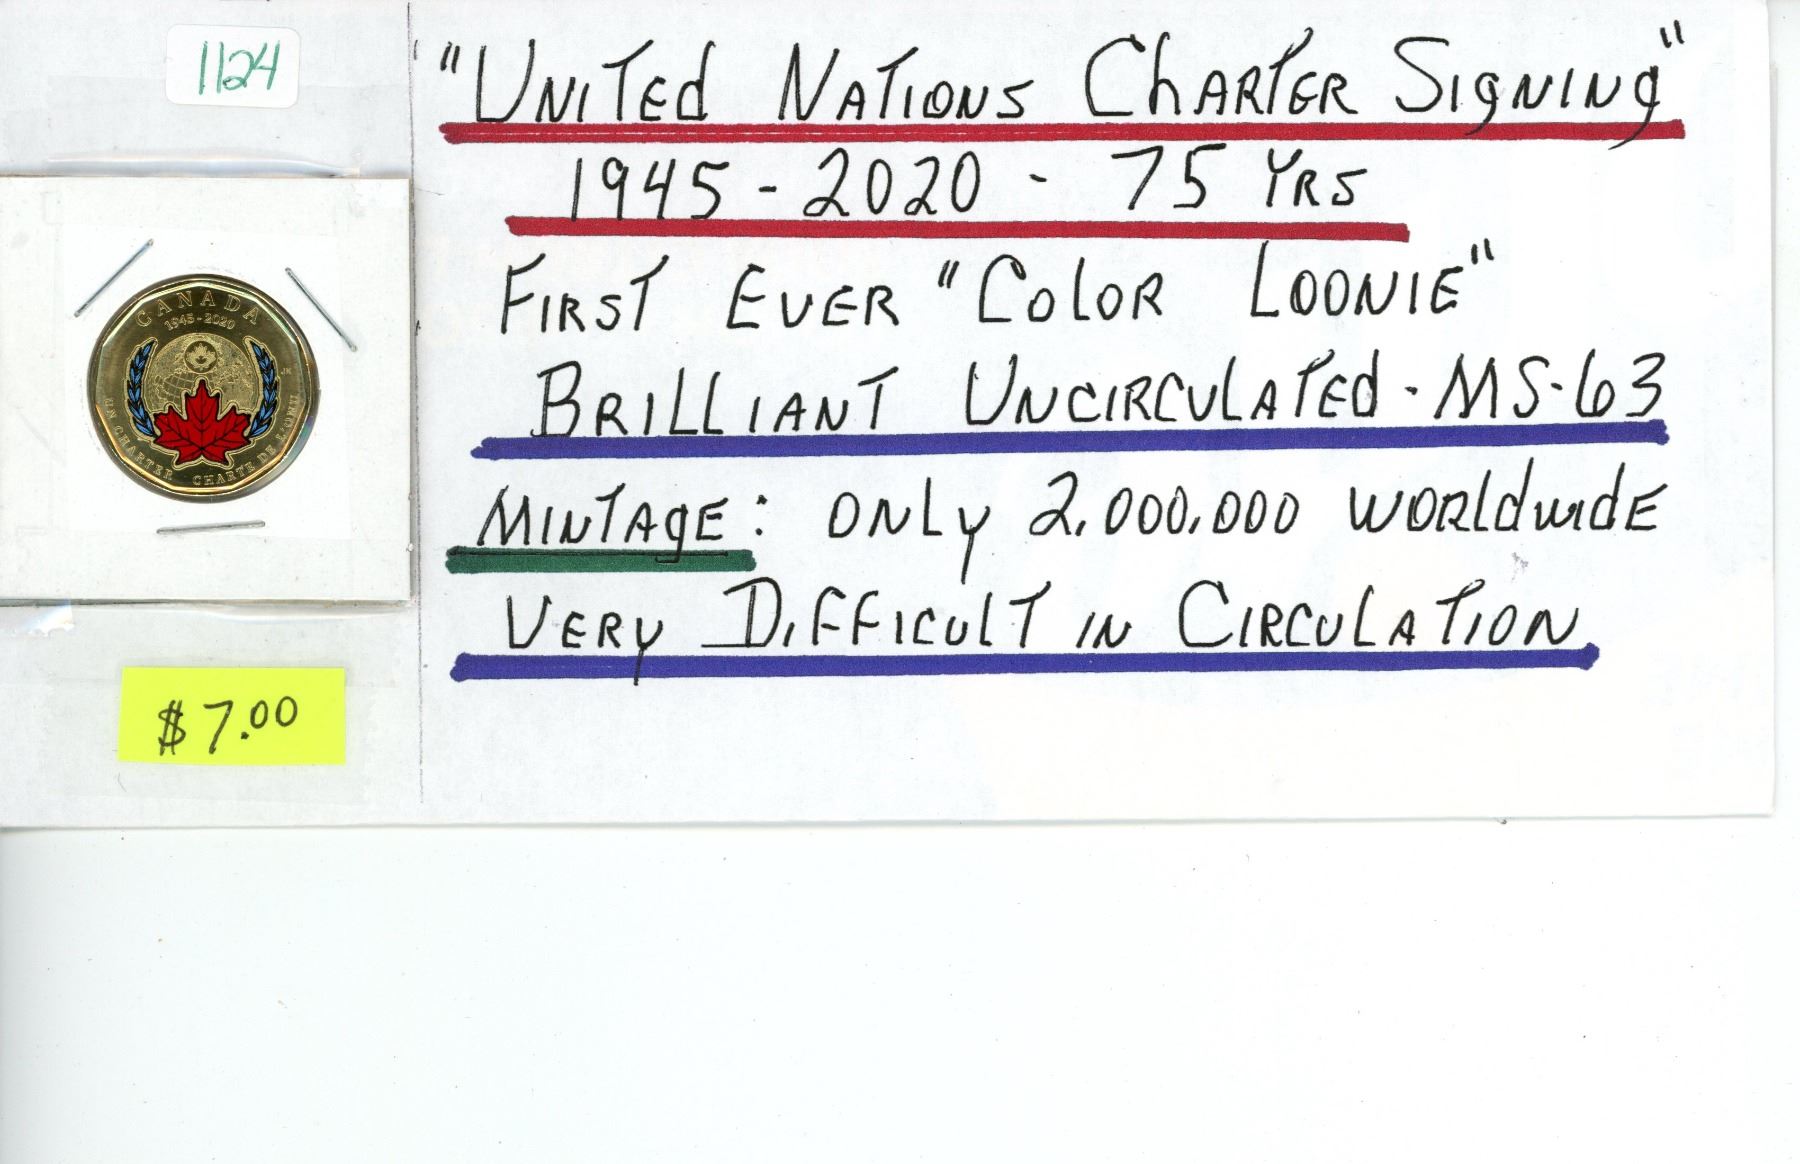 1124
"UNITEd NATIONS ChARTER SIgNINg"
1945 - 2020 - 75 YRS
FIRST EVER "COLOR LOONIE"
BRILLIANT UNCIRCULATEd - MS-63
MINTAgE: ONLy 2,000,000 WORLdwidE
VERy DIFFICULT IN CIRCULATION
$7.00
CANADA
1945-2020
JH
UN CHARTER CHARTE DE L'ONU